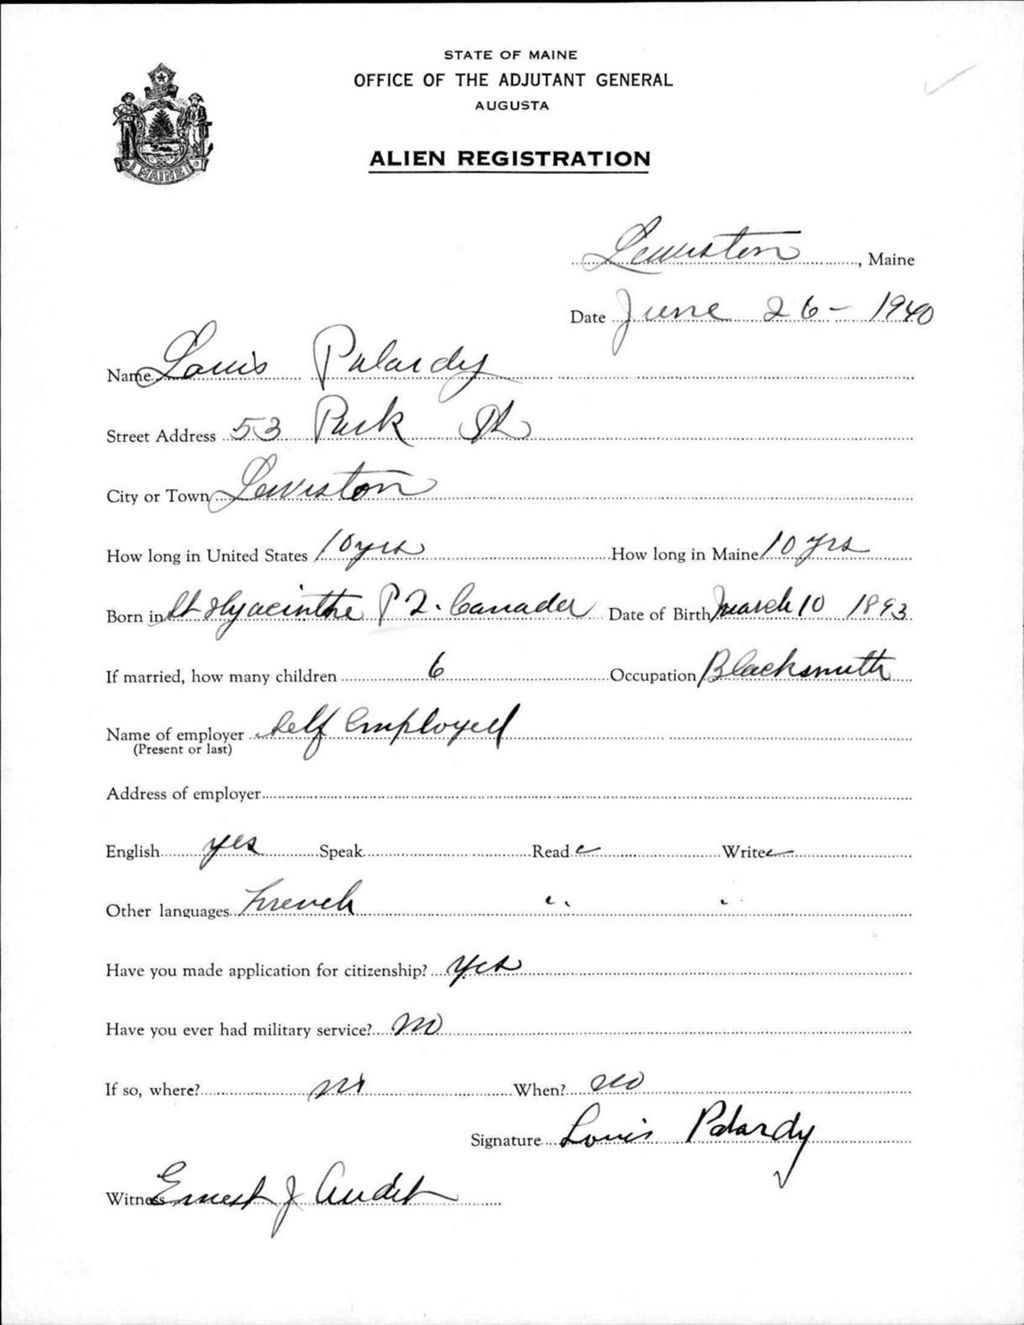 STATE OF MAINE
OFFICE OF THE ADJUTANT GENERAL
AUGUSTA
ALIEN REGISTRATION
MAINE
Lewiston, Maine
Date June 26 - 1940
Name Louis Palardy
Street Address 53 Park St
City or Town Lewiston
How long in United States 10 yrs How long in Maine 10 yrs
Born in St Hyacinthe P Q. Canada Date of Birth March 10 1893
If married, how many children 6 Occupation Blacksmith
Name of employer Self Employed
(Present or last)
Address of employer
English yes Speak Read " Write "
Other languages French " "
Have you made application for citizenship? Yes
Have you ever had military service? No
If so, where? no When? no
Signature Louis Palardy
Witness Ernest J Audet